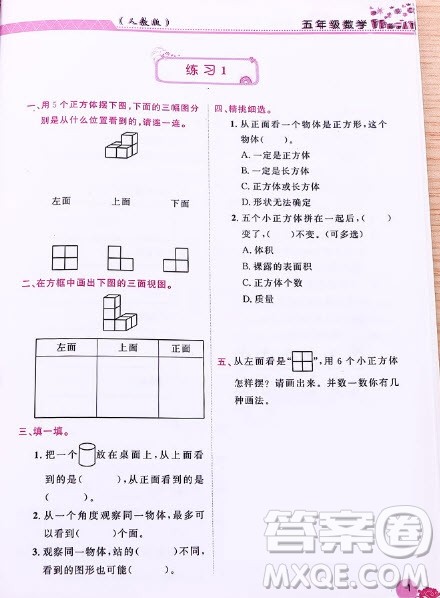 （人教版）
五年级数学
练习1
一、用5个正方体摆下图，下面的三幅图分
别是从什么位置看到的，请连一连。
左面 上面 下面
二、在方框中画出下图的三面视图。
左面 上面 正面
三、填一填。
1. 把一个 放在桌面上，从上面看到
的是（ ），从正面看到的是（ ）。
2. 从一个角度观察同一物体，最多可
以看到（ ）个面。
3. 观察同一物体，站的（ ）不同，
看到的图形也可能（ ）。
四、精挑细选。
1. 从正面看一个物体是正方形，这个
物体（ ）。
A. 一定是正方体
B. 一定是长方体
C. 正方体或长方体
D. 形状无法确定
2. 五个小正方体拼在一起后，（ ）
变了，（ ）不变。（可多选）
A. 体积
B. 裸露的表面积
C. 正方体个数
D. 质量
五、从左面看是“ ”，用6个小正方体
怎样摆？请画出来。并数一数你有几
种画法。
答案圈
MXQE.COM
1